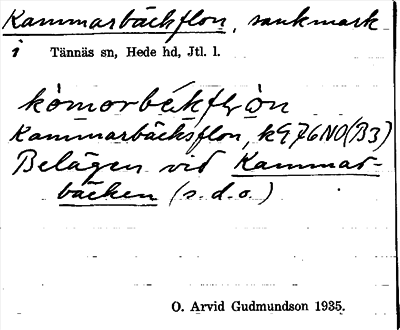 Kammarbäckflon, sankmark
i Tännäs sn, Hede hd, Jtl. l.
kòmorbékflọòn
Kammarbäcksflon, k976NO(B3)
Belägen vid Kammar-
bäcken (s.d.o.)
O. Arvid Gudmundson 1935.